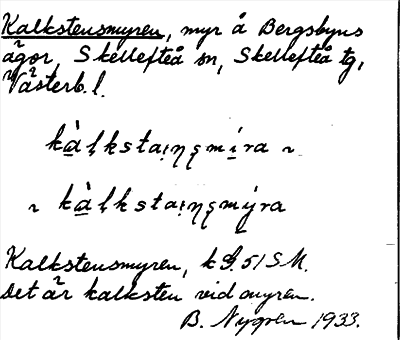 Kalkstensmyren, myr å Bergsbyns
ägor, Skellefteå sn, Skellefteå tg,
Västerb. l.
kàlkstaiŋsmíra ~
~ kàlkstaiŋsmýra
Kalkstensmyren, 51 SM.
Det är kalksten vid myren.
B. Nygren 1933.